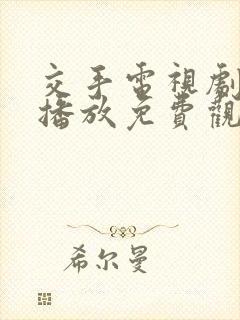 交手電視劇
播放免費觀
希尔曼